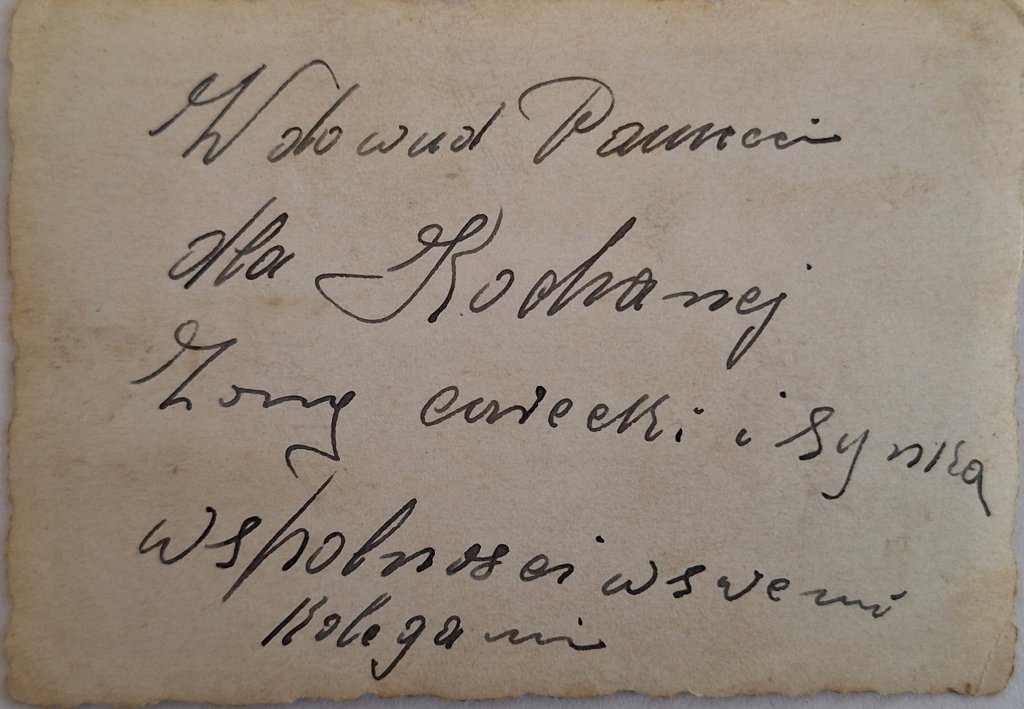 W dowud Pamieci
dla Kochanej
Zony curecki i synka
wspolnosci w swemi
Kolegami